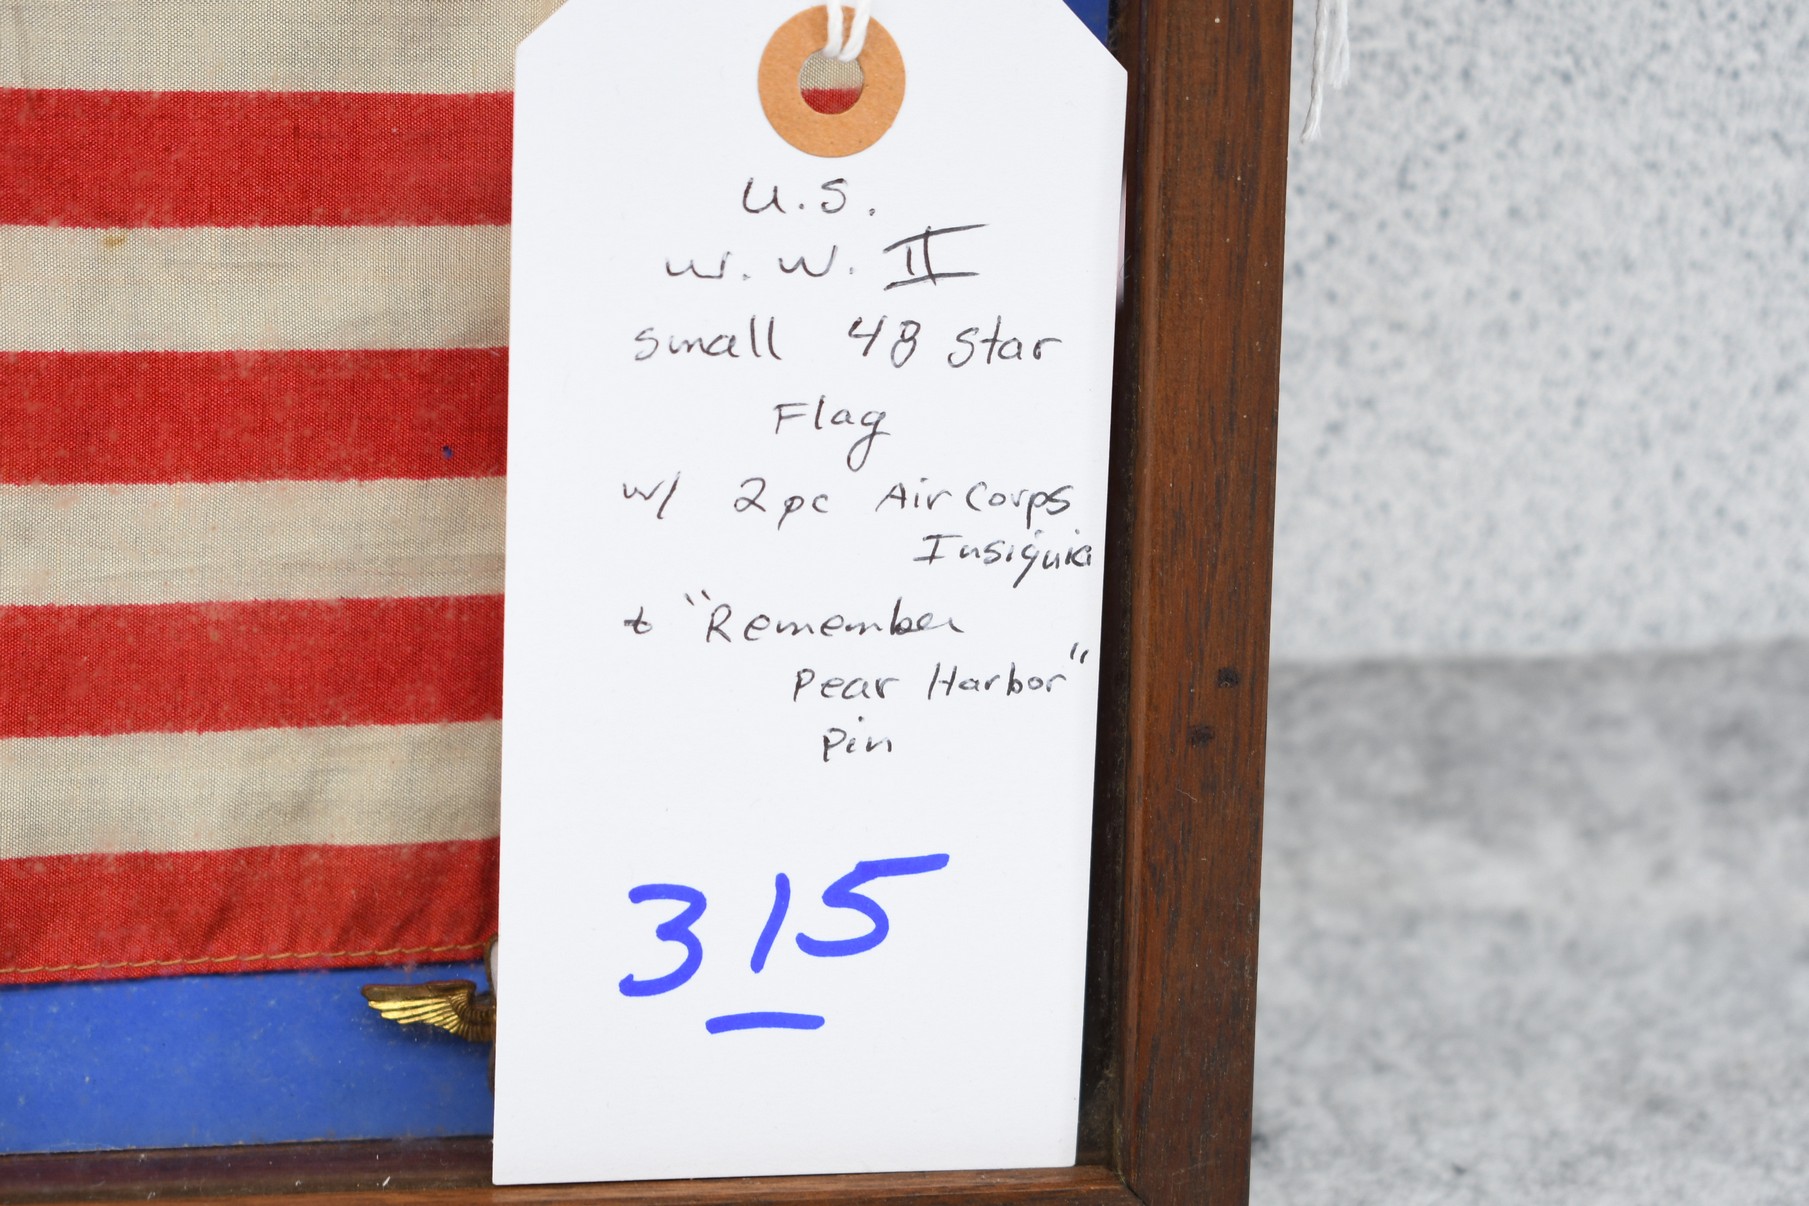 U.S.
W.W. II
small 48 star
Flag
w/ 2pc Air Corps
Insignia
& "Remember
Pear Harbor"
Pin
315